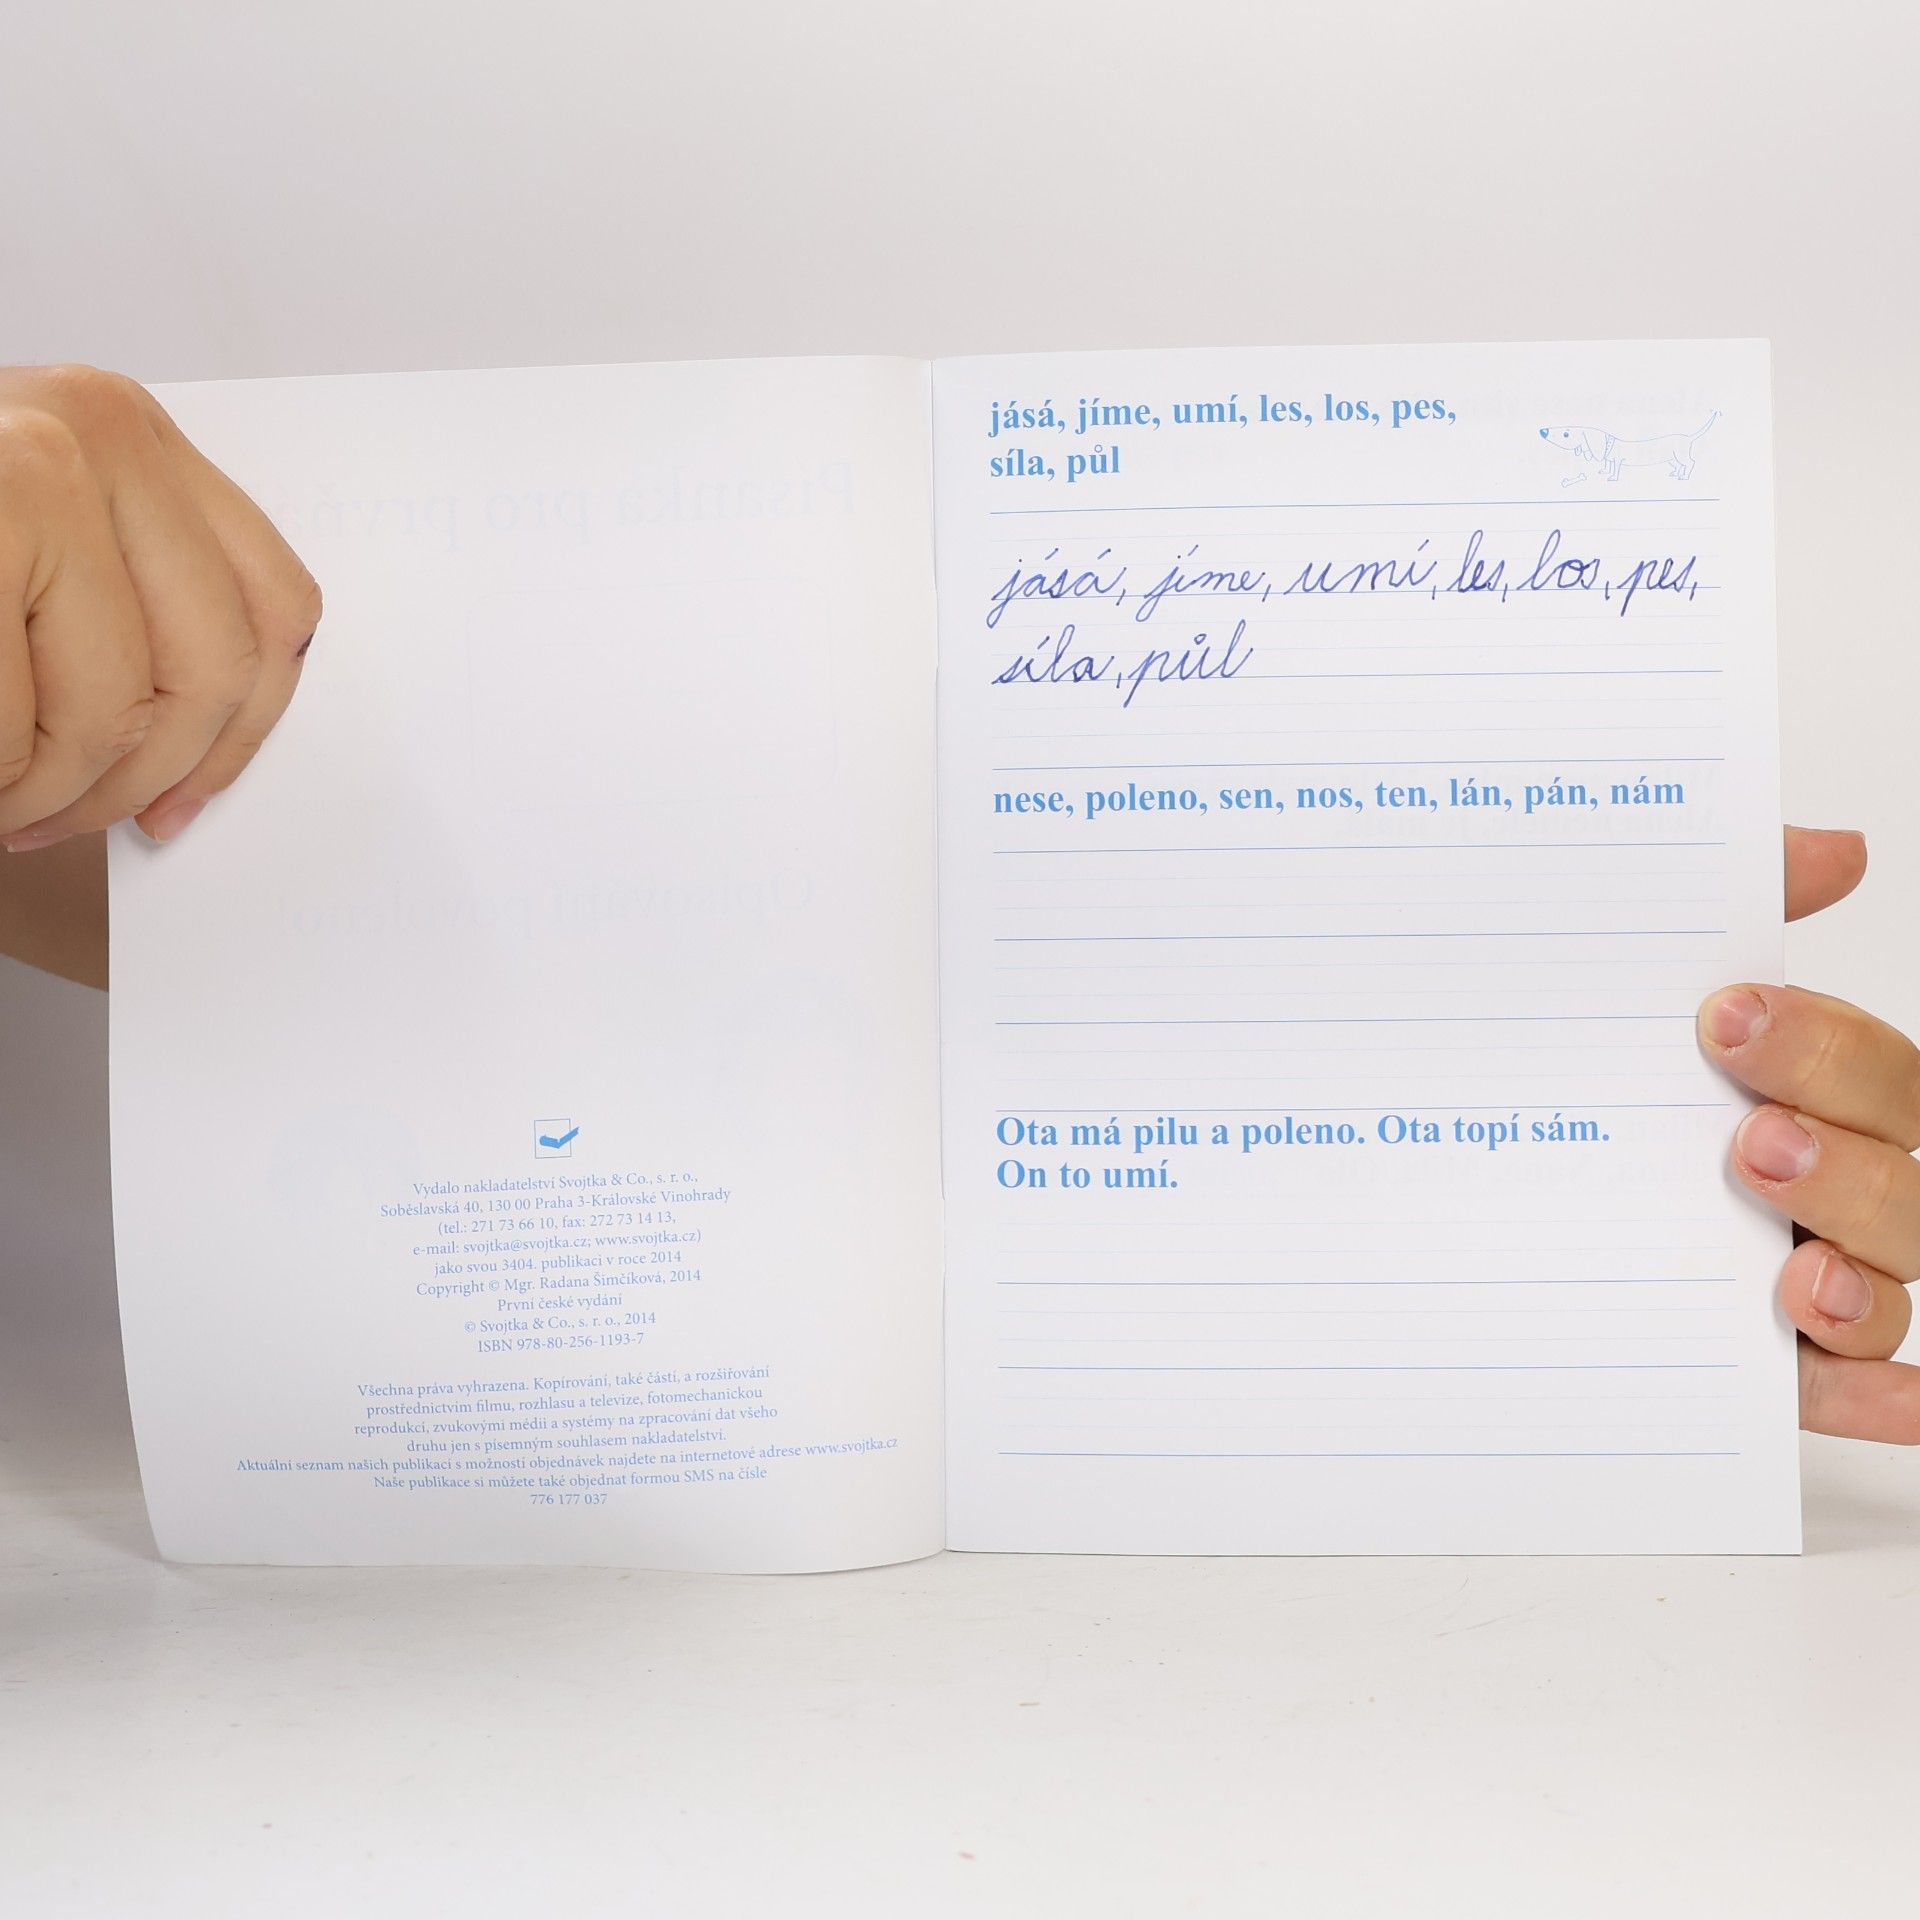 Vydalo nakladatelství Svojtka & Co., s. r. o.,
Soběslavská 40, 130 00 Praha 3-Královské Vinohrady
(tel.: 271 73 66 10, fax: 272 73 14 13,
e-mail: svojtka@svojtka.cz; www.svojtka.cz)
jako svou 3404. publikaci v roce 2014
Copyright © Mgr. Radana Šimčíková, 2014
První české vydání
© Svojtka & Co., s. r. o., 2014
ISBN 978-80-256-1193-7
Všechna práva vyhrazena. Kopírování, také částí, a rozšiřování
prostřednictvím filmu, rozhlasu a televize, fotomechanickou
reprodukcí, zvukovými médii a systémy na zpracování dat všeho
druhu jen s písemným souhlasem nakladatelství.
Aktuální seznam našich publikací s možností objednávek najdete na internetové adrese www.svojtka.cz
Naše publikace si můžete také objednat formou SMS na čísle
776 177 037
jásá, jíme, umí, les, los, pes,
síla, půl
jásá, jíme, umí, les, los, pes,
síla, půl
nese, poleno, sen, nos, ten, lán, pán, nám
Ota má pilu a poleno. Ota topí sám.
On to umí.